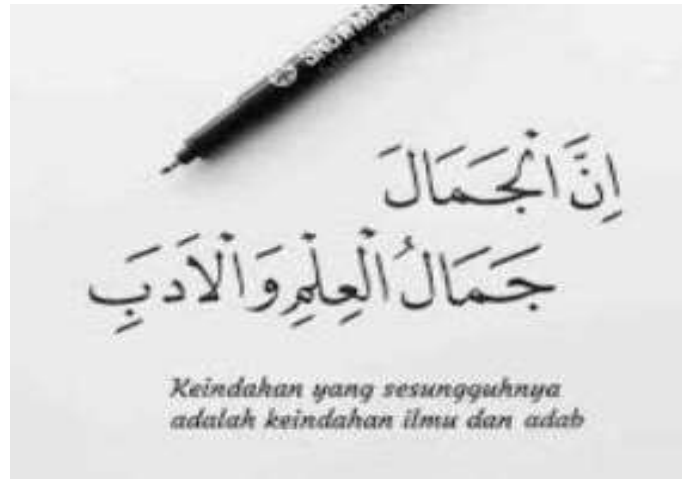 اِنَّ الْجَمَالَ
جَمَالُ الْعِلْمِ وَالْاَدَبِ
Keindahan yang sesungguhnya
adalah keindahan ilmu dan adab